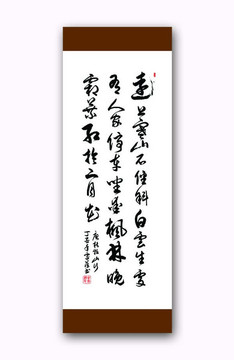 远上寒山石径斜白云生处
有人家停车坐爱枫林晚
霜叶红于二月花
唐杜牧山行